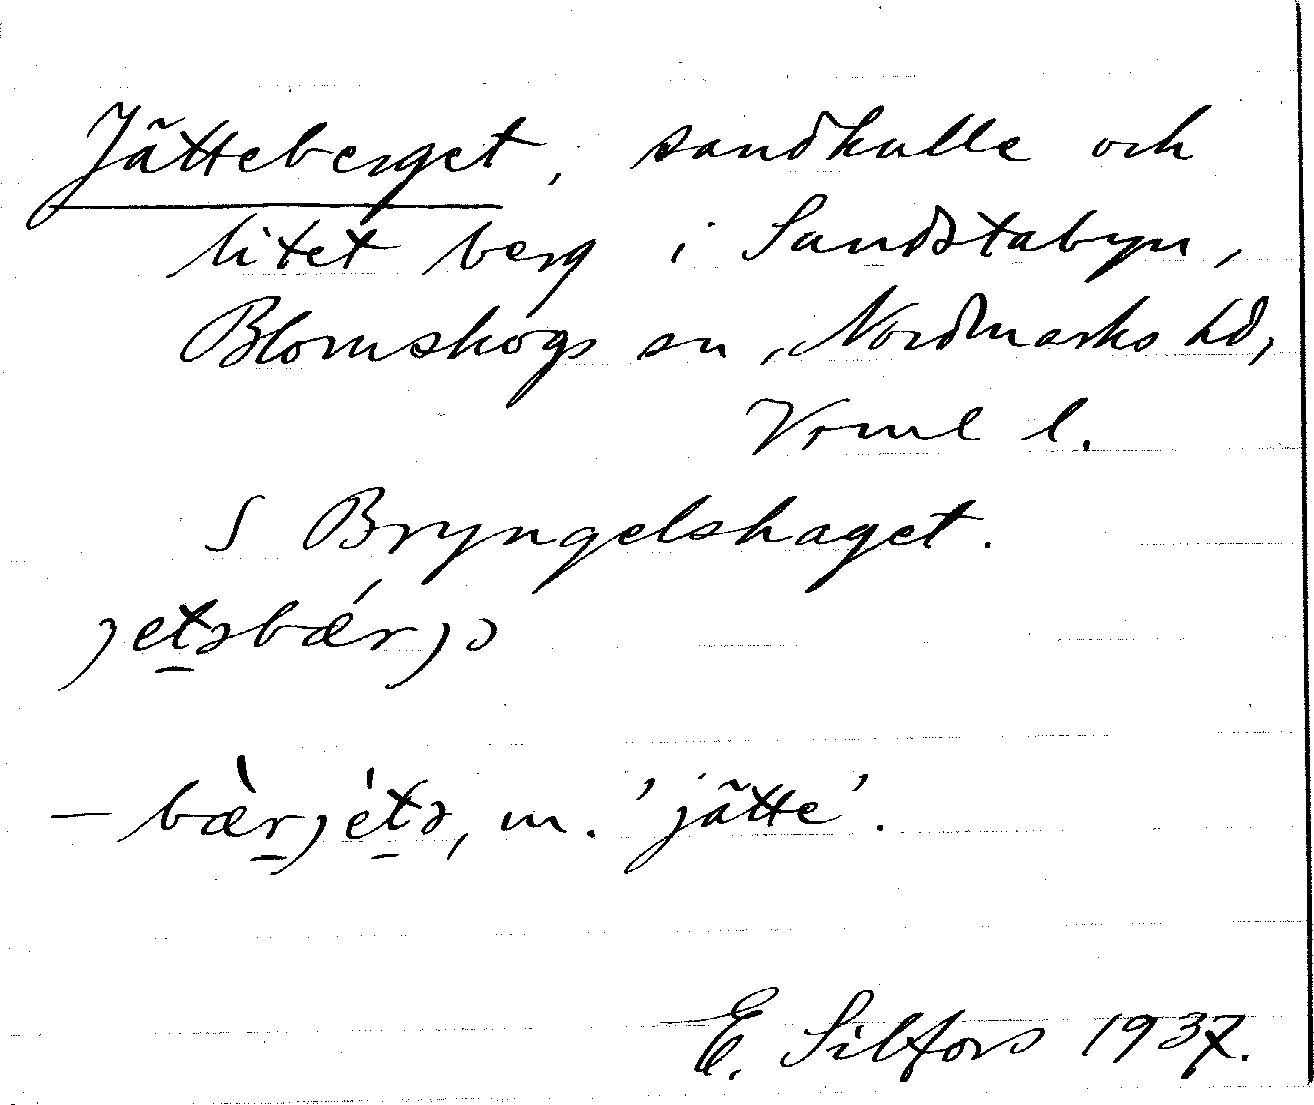 Jätteberget, sandkulle och
litet berg i Sandstabyn,
Blomskogs sn, Nordmarks hd,
Vrml l.
S Bryngelshaget.
jet̠əbǽrjə
— bæ̀r̠jét̠ə, m. 'jätte'.
E. Silfors 1937.